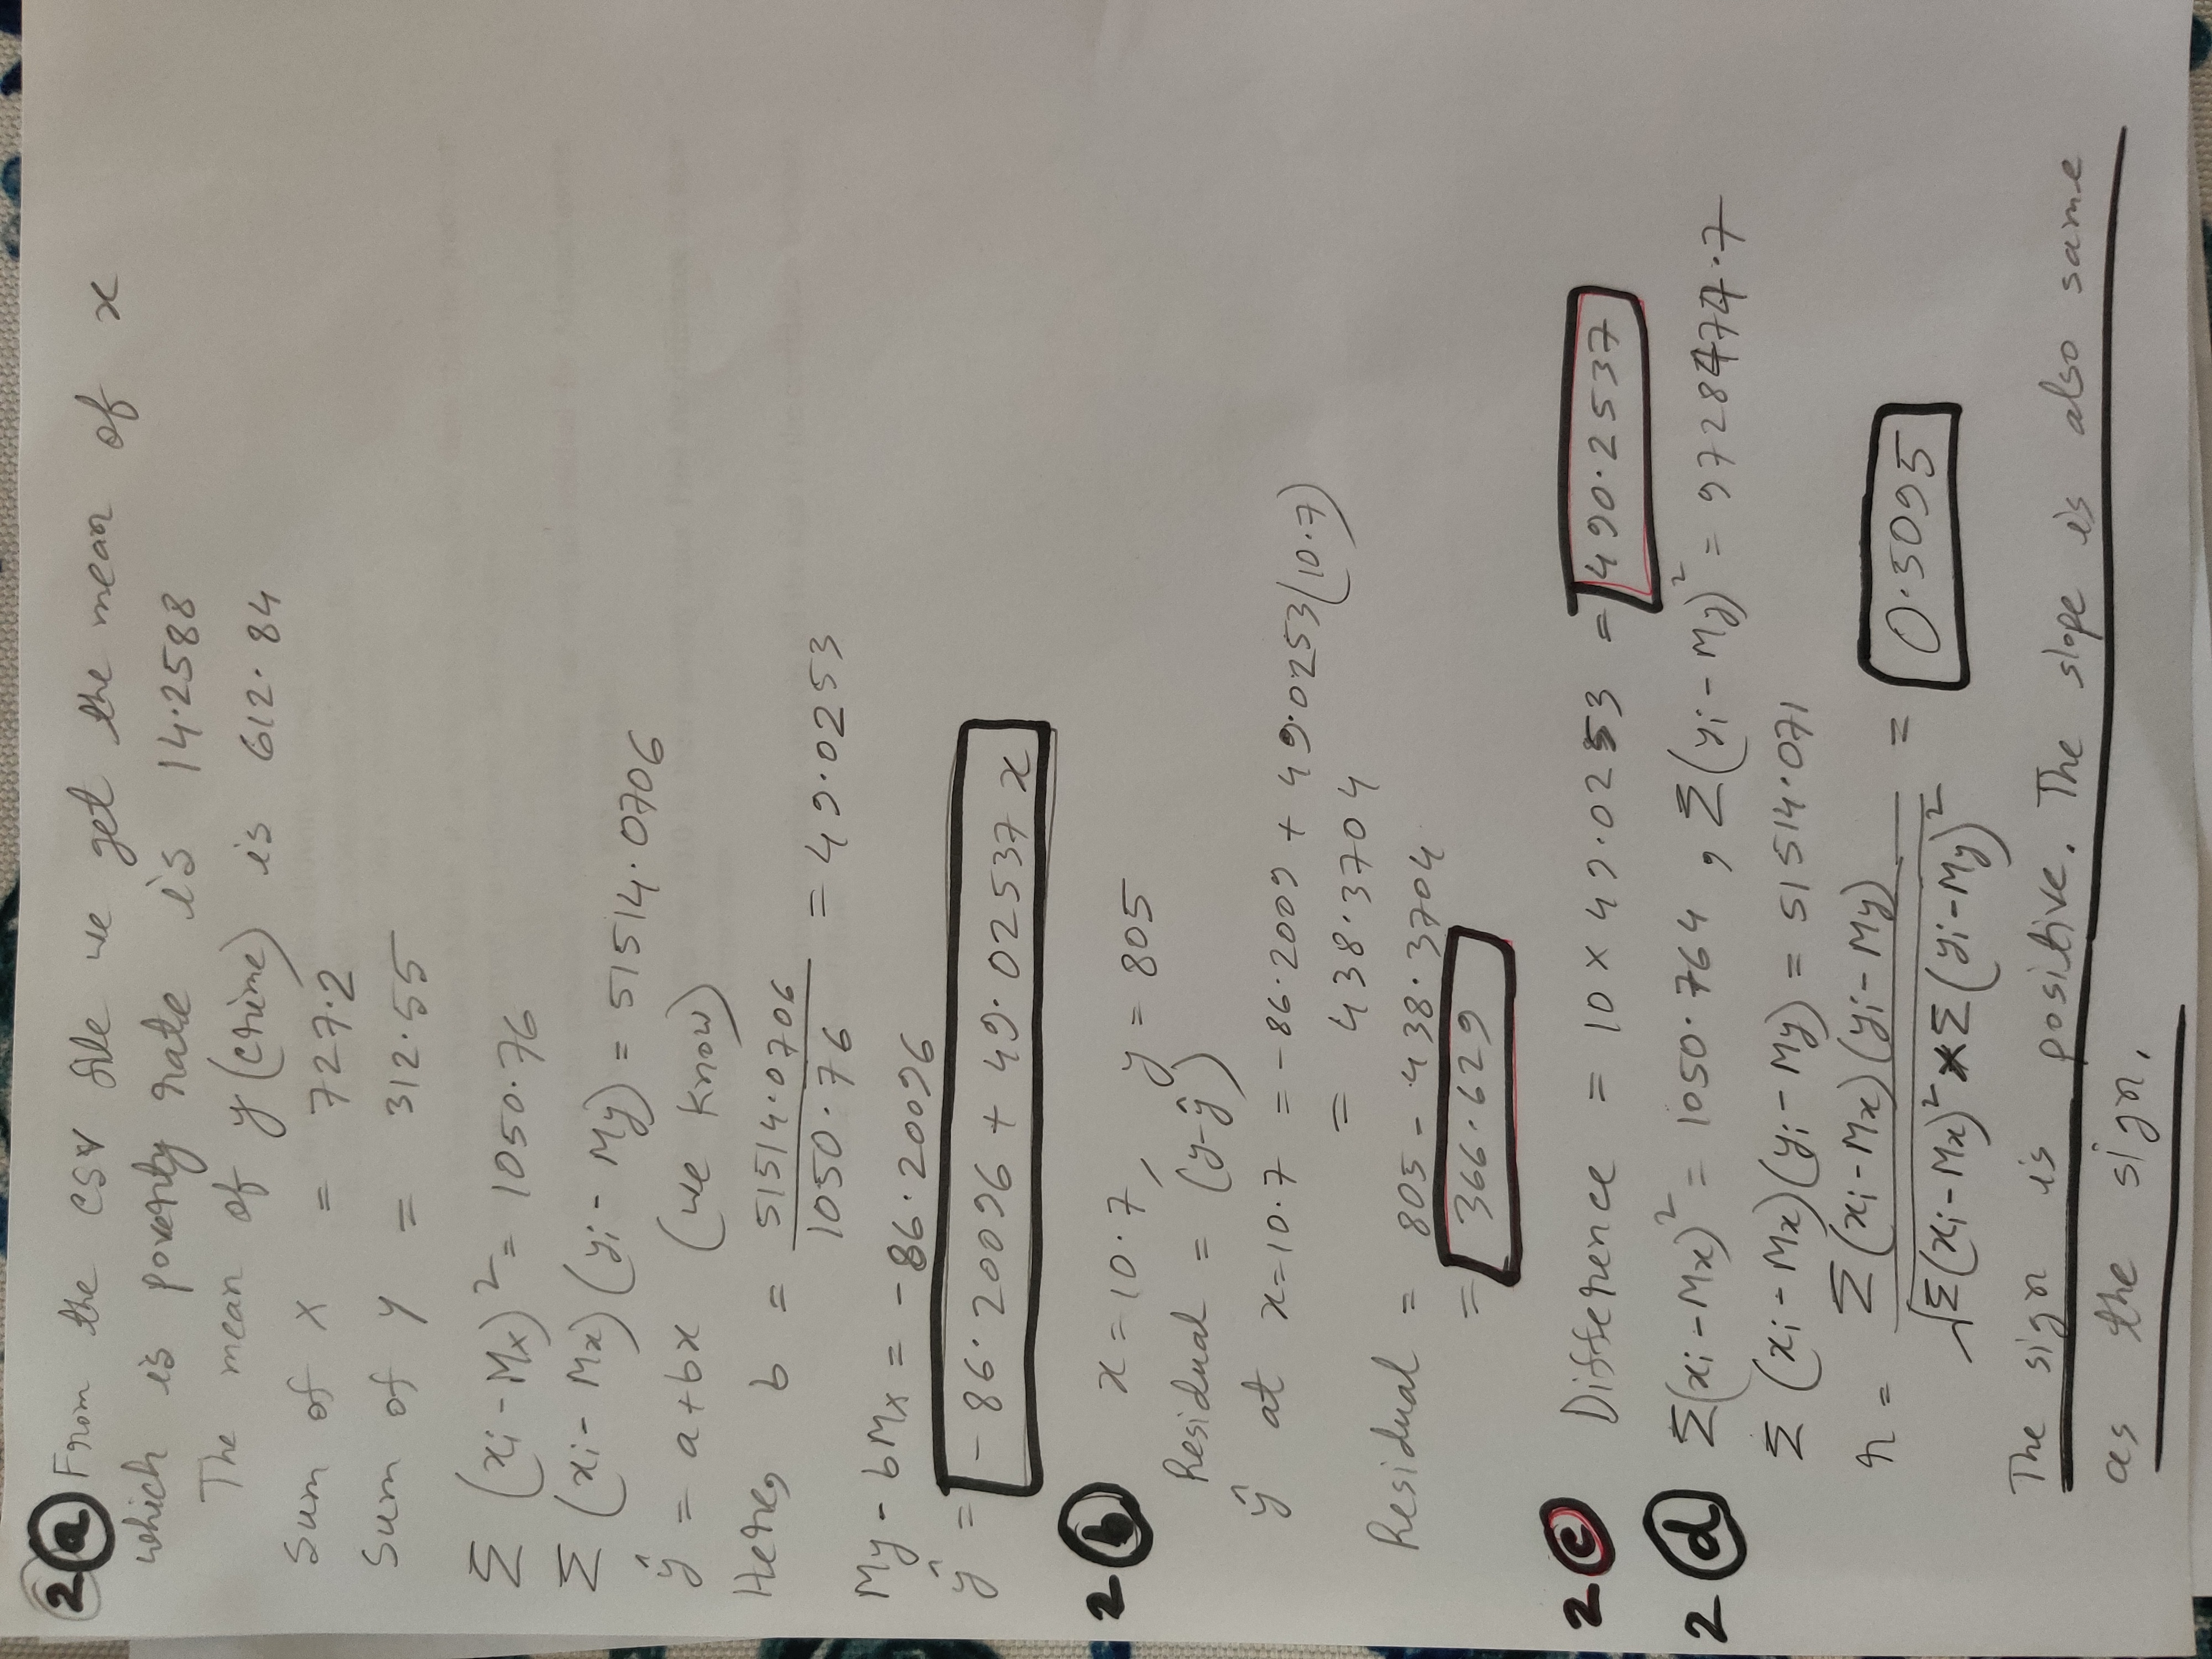 2 a From the CSV file we get the mean of x
which is poverty rate is 14.2588
The mean of y (crime) is 612.84
Sum of X = 727.2
Sum of Y = 312.55
Σ (xi - Mx)² = 1050.76
Σ (xi - Mx) (yi - My) = 51514.0706
ŷ = a+bx (we know)
Here, b = 51514.0706 / 1050.76 = 49.0253
My - bMx = -86.20096
ŷ = -86.20096 + 49.02537 x
2 b x=10.7, y = 805
Residual = (y-ŷ)
ŷ at x=10.7 = -86.2009 + 49.0253(10.7)
= 438.3704
Residual = 805 - 438.3704
= 366.629
2 c Difference = 10 × 49.0253 = 490.2537
2 d Σ(xi - Mx)² = 1050.764, Σ(yi - My)² = 9728474.7
Σ (xi - Mx)(yi - My) = 51514.071
r = Σ(xi - Mx)(yi - My) / √Σ(xi - Mx)² * Σ(yi - My)² = 0.5095
The sign is positive. The slope is also same
as the sign.